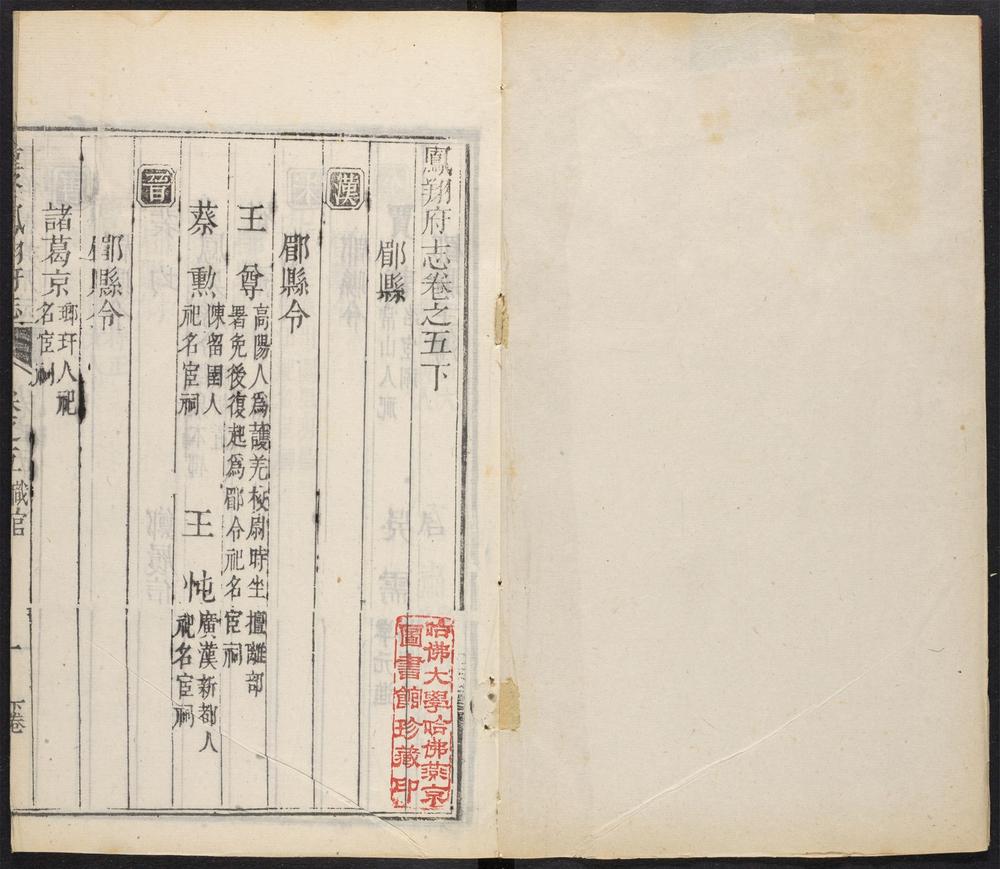 鳳翔府志卷之五下
郿縣
漢
郿縣令
王尊高陽人爲護羌校尉時坐擅離部
署免後復起爲郿令祀名宦祠
蔡勲陳留圉人
祀名宦祠
王忳廣漢新都人
祀名宦祠
晉
郿縣令
諸葛京瑯玡人祀
名宦祠
卷之五 職官
一
下卷
哈佛大學哈佛燕京
圖書館珍藏印